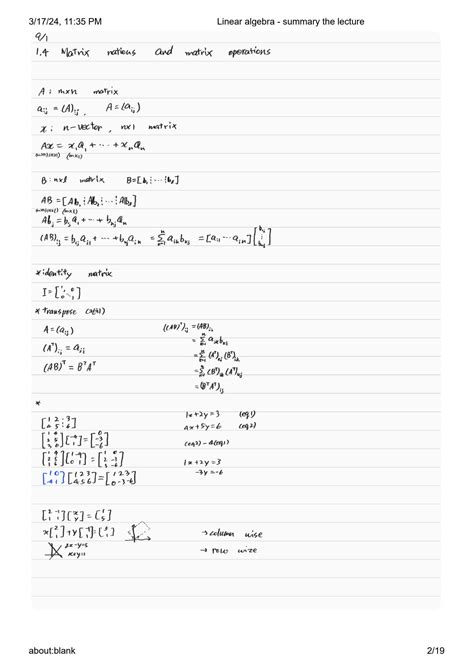 3/17/24, 11:35 PM
Linear algebra - summary the lecture
9/1
1.4 Matrix notions and matrix operations
A : m×n matrix
aᵢⱼ = (A)ᵢⱼ, A = (aᵢⱼ)
x : n-vector, n×1 matrix
Ax = x₁a₁ + ⋯ + xₙaₙ
B : n×l matrix B=[b₁⋮⋯⋮bₗ]
AB = [Ab₁⋮Ab₂⋮⋯⋮Abₗ]
Abⱼ = b₁ⱼa₁ + ⋯ + bₙⱼaₙ
(AB)ᵢⱼ = b₁ⱼaᵢ₁ + ⋯ + bₙⱼaᵢₙ = Σ aᵢₖbₖⱼ = [aᵢ₁ ⋯ aᵢₙ][b₁ⱼ ⋮ bₙⱼ]
* identity matrix
I = [1 0 ⋱ 0 1]
* transpose
A = (aᵢⱼ)
(Aᵀ)ᵢⱼ = aⱼᵢ
(AB)ᵀ = BᵀAᵀ
((AB)ᵀ)ᵢⱼ = (AB)ⱼᵢ
= Σ aⱼₖbₖᵢ
= Σ (Aᵀ)ₖⱼ (Bᵀ)ᵢₖ
= Σ (Bᵀ)ᵢₖ (Aᵀ)ₖⱼ
= (BᵀAᵀ)ᵢⱼ
*
[1 2 3; 4 5 6]
[1 0; -4 1][1 2 3; 4 5 6] = [1 2 3; 0 -3 -6]
1x+2y=3 (eq1)
4x+5y=6 (eq2)
(eq2) - 4(eq1)
1x+2y=3
-3y=-6
[2 -1; 1 1][x; y] = [1; 5]
x[2; 1] + y[-1; 1] = [1; 5]
→ column wise
x+y=5
→ row wize
about:blank
2/19